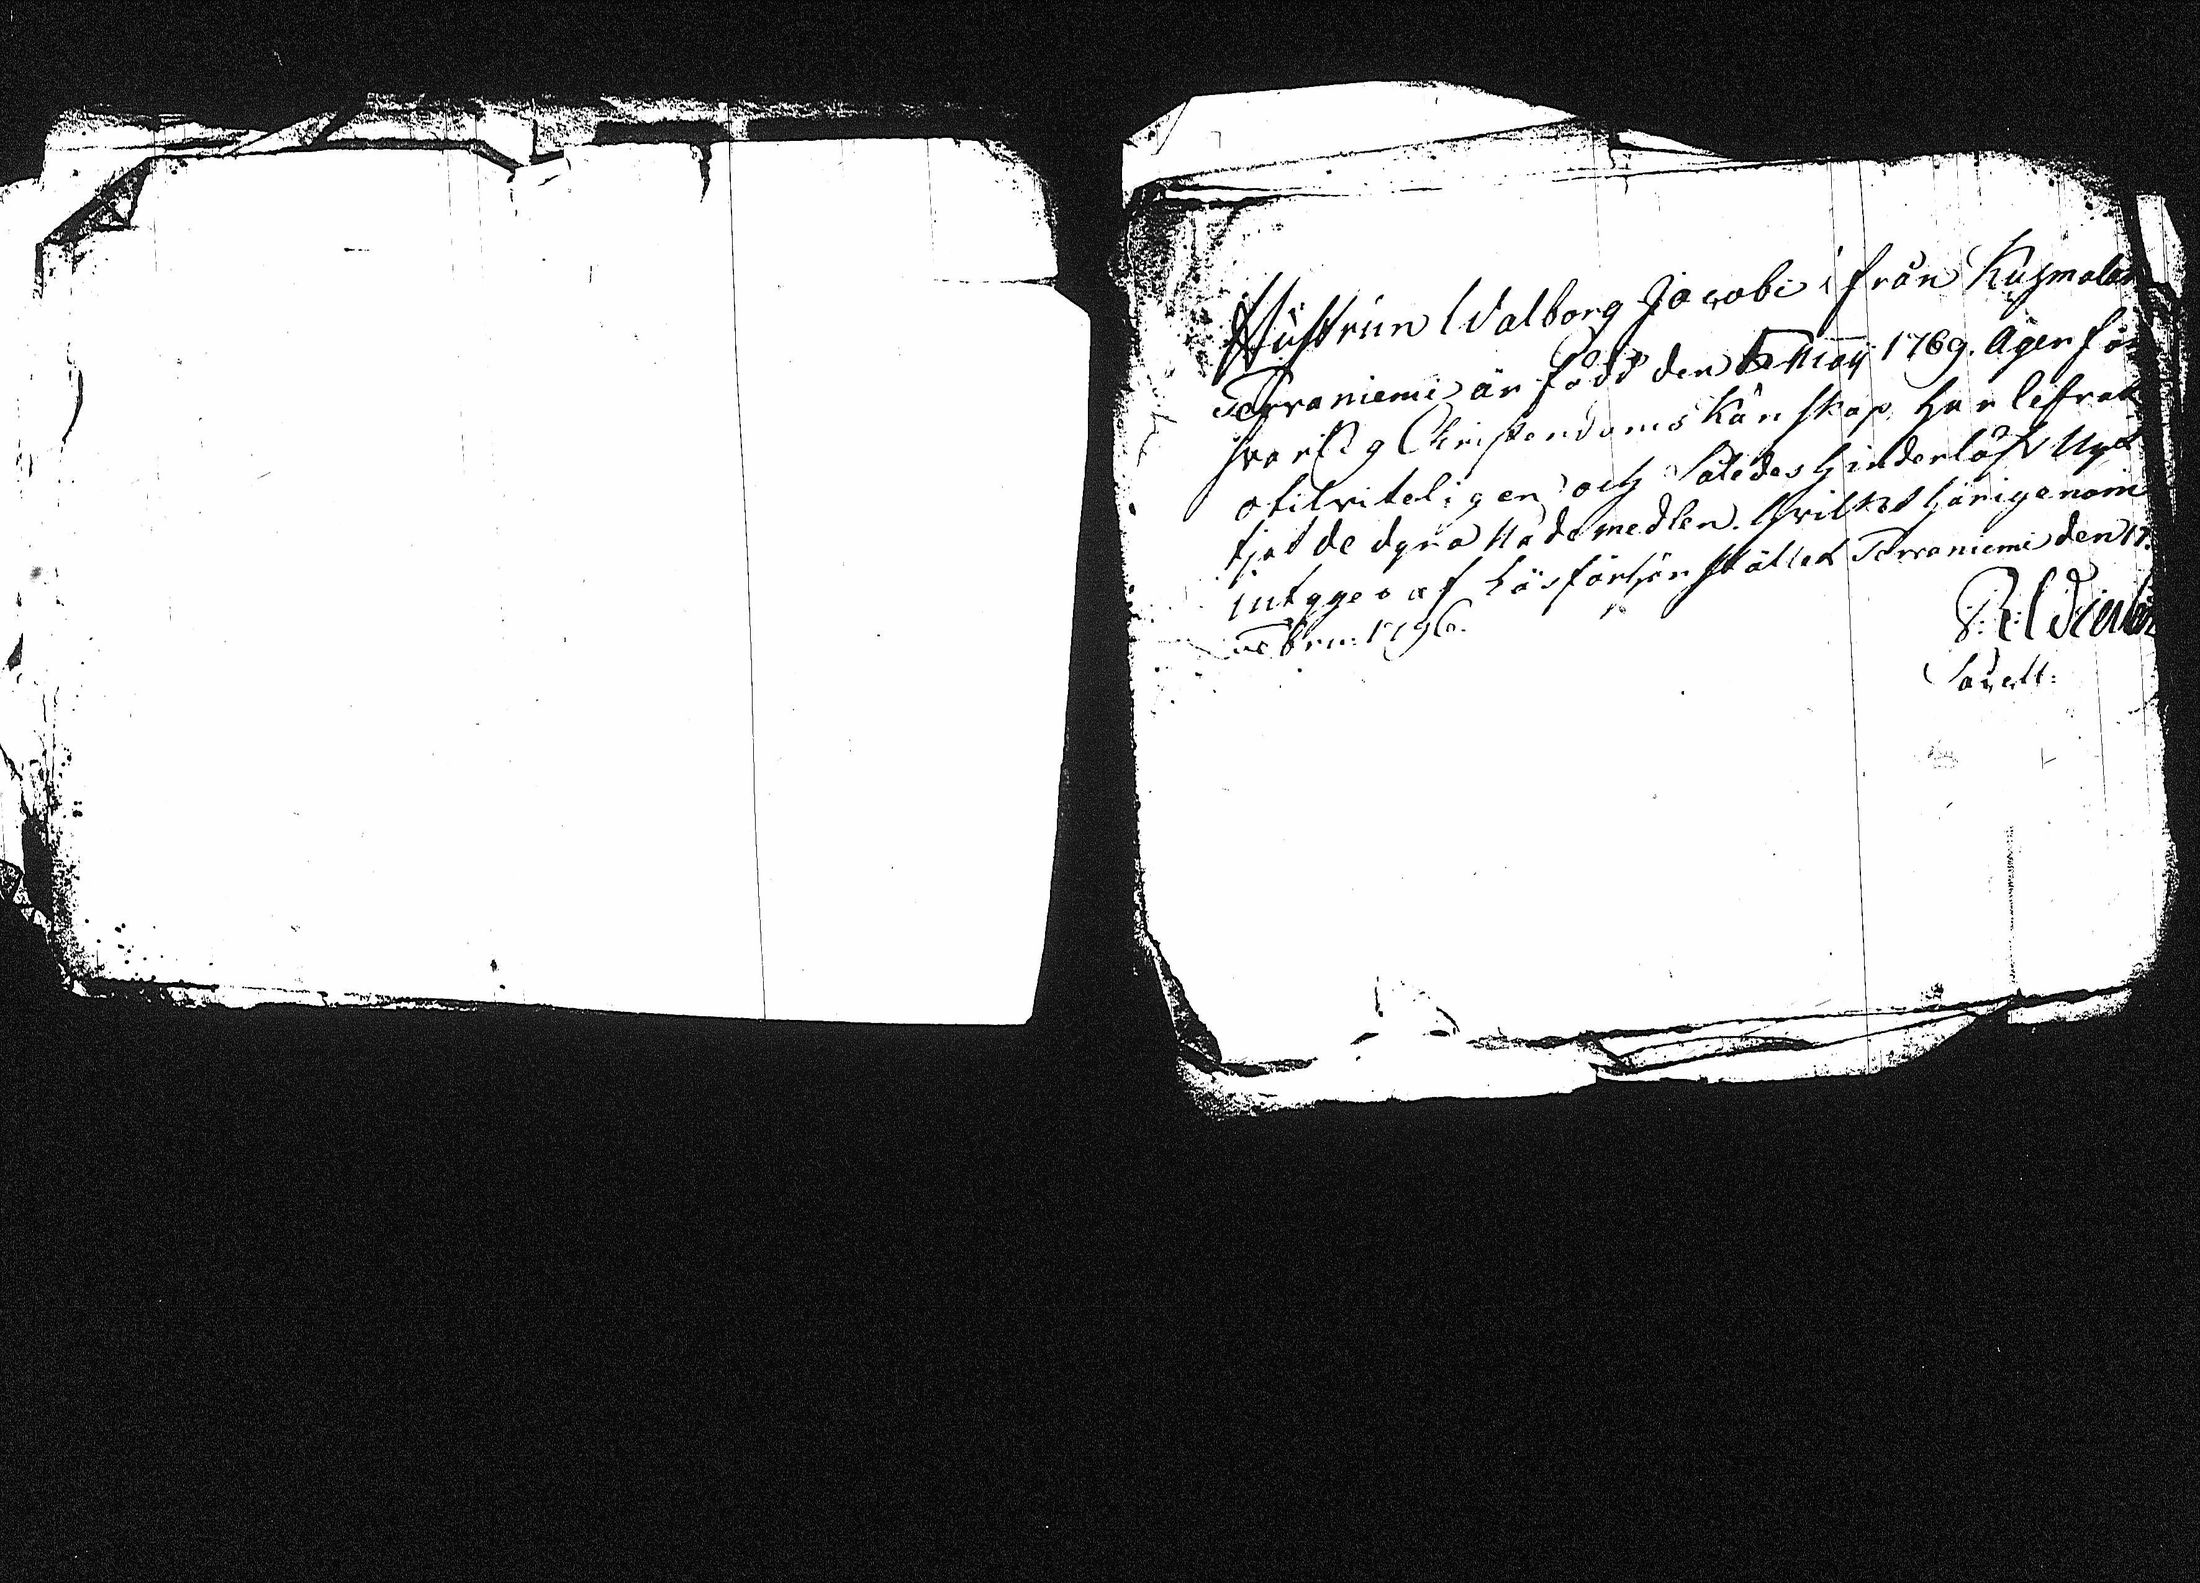 Hustrun Walborg Jacobi ifrån Kuhmalax
Terraniemi är född den Maij 1769. Äger för
svarlig Christendoms Känskap, har lefvat
otilviteligen och Således hinderlöst Nyt
tjat de dyra Nådemedlen. Hvilket härigenom
intyges af Läsförhörstället Terraniemi den 17.
Febru: 1796.
Sacell: